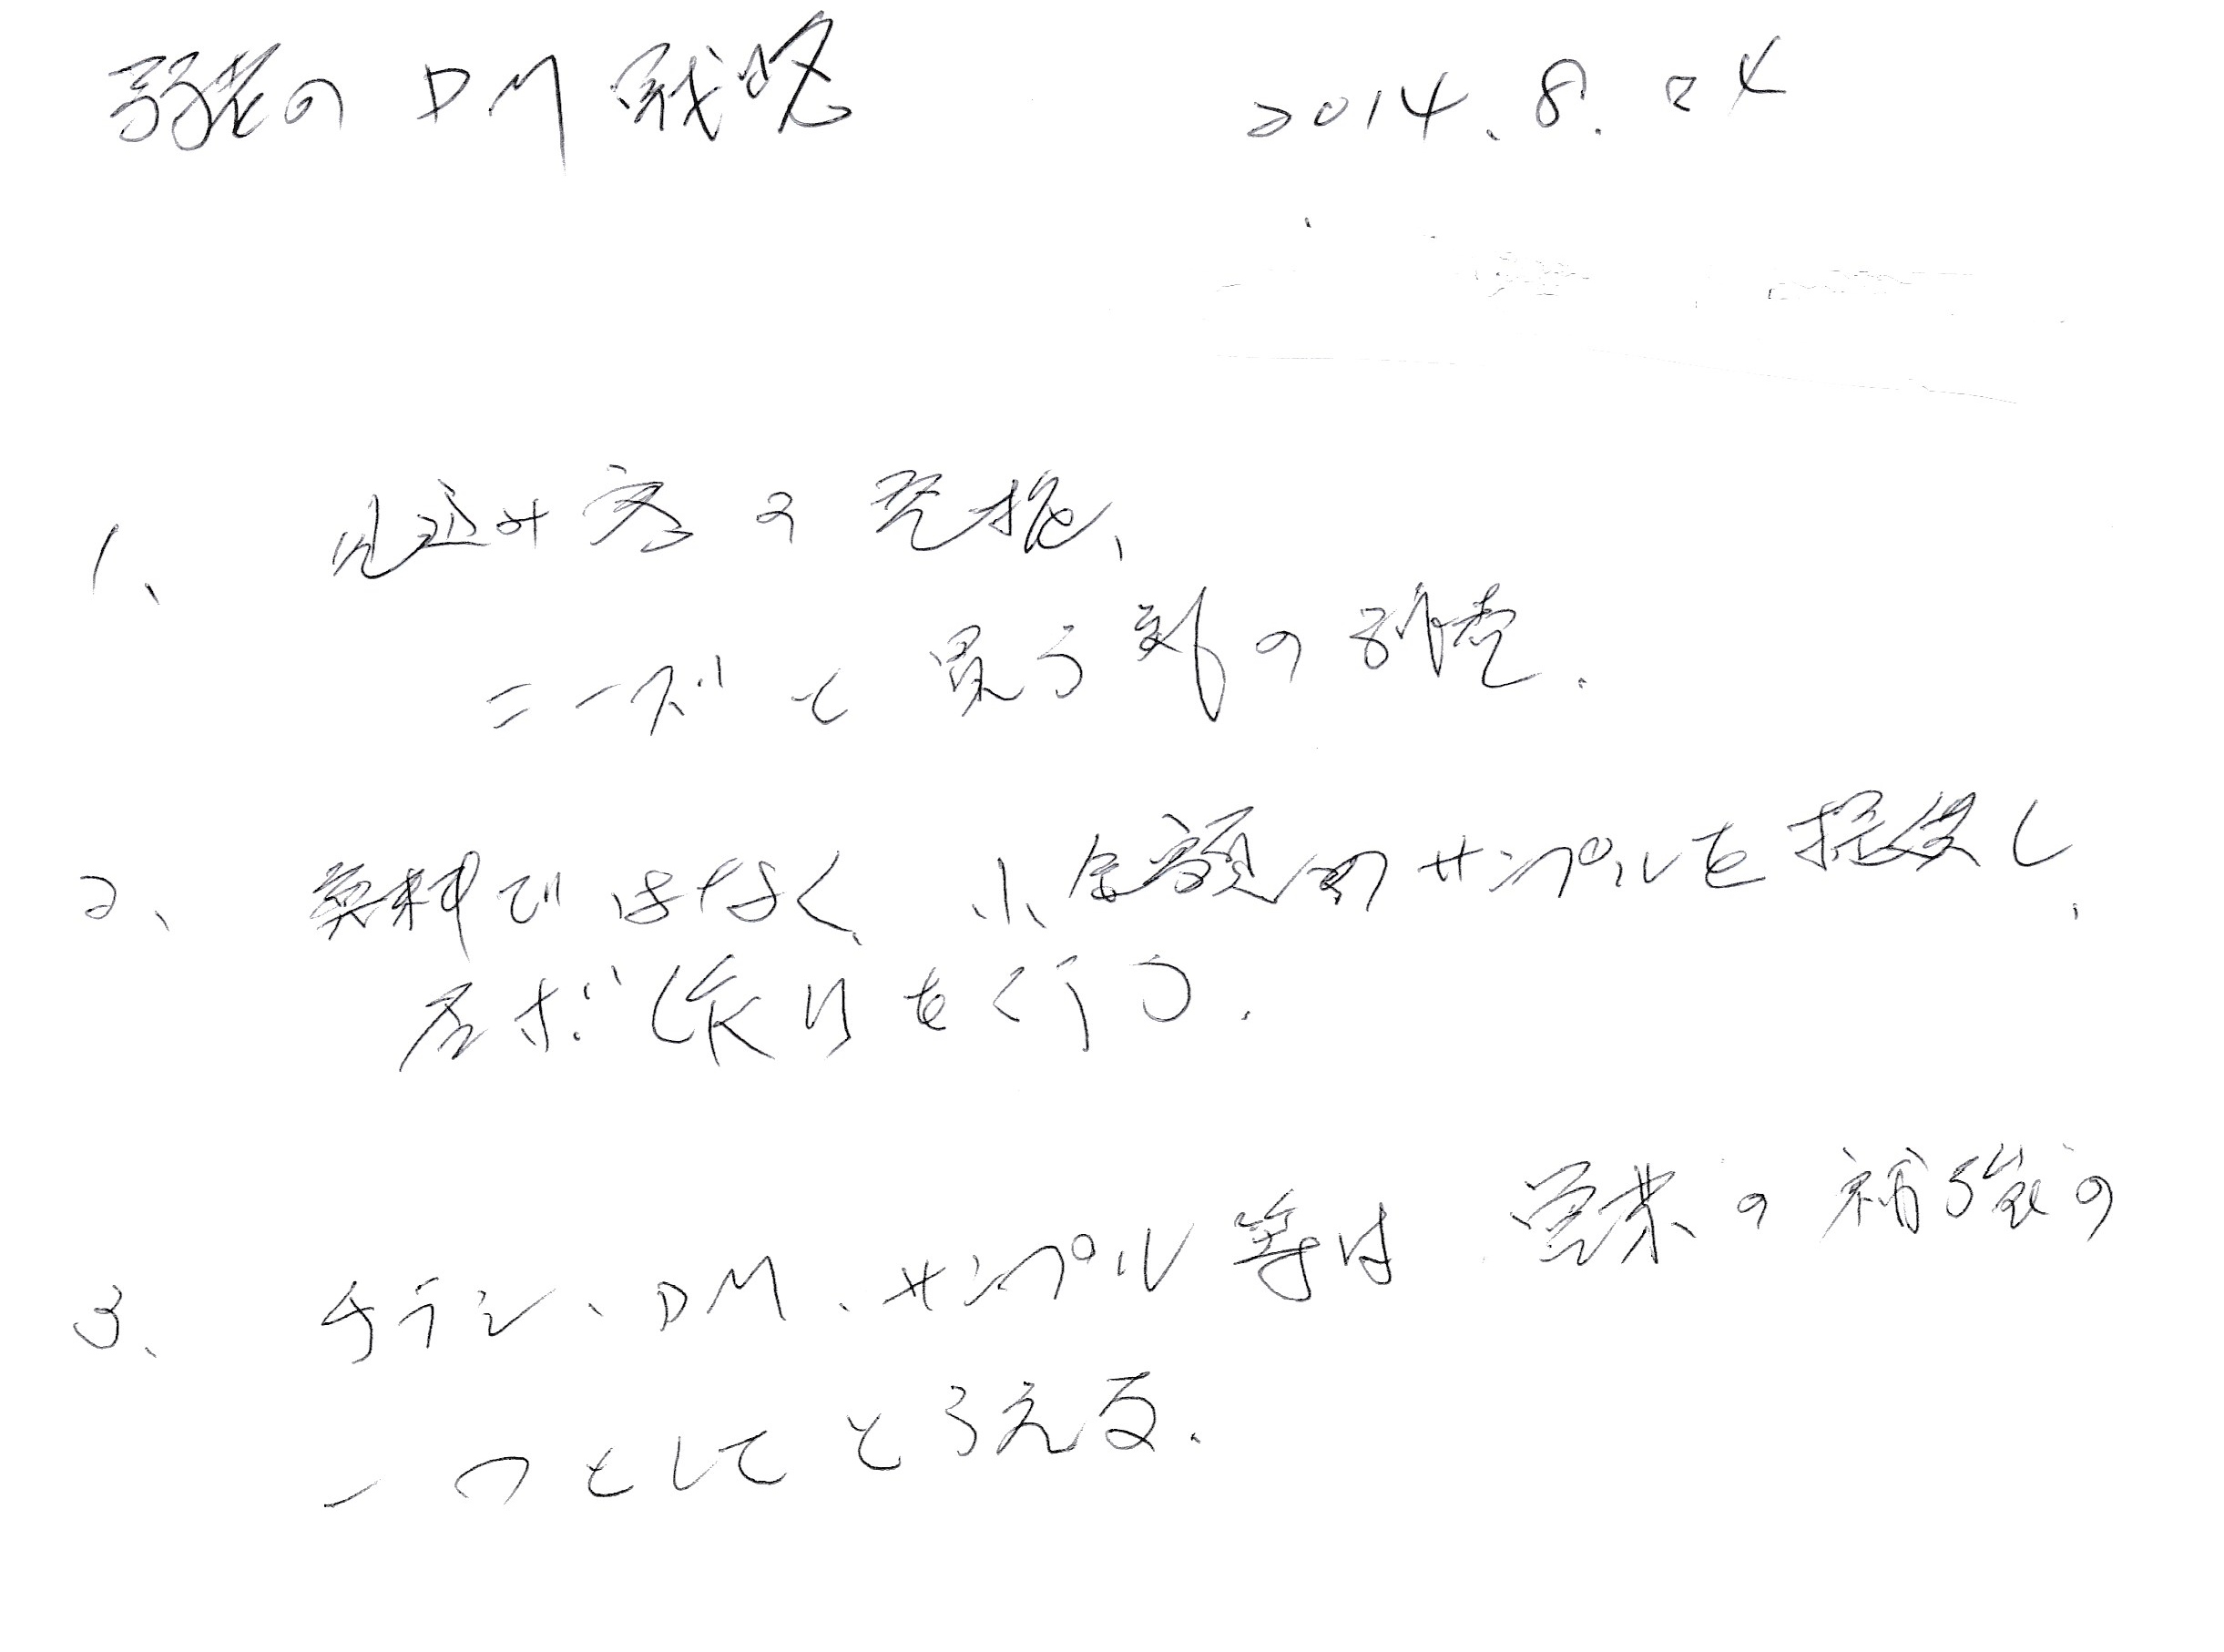 弱者の DM 戦略 2014.8.24
1、 見込み客の発掘、
ニーズと買う釣の別売.
2、 無料ではなく、小金額のサンプルを提供し、
尽ボ(依りを行う.
3、 チラシ、DM、サンプル等は 営業の補強の
一つとしてとらえる.